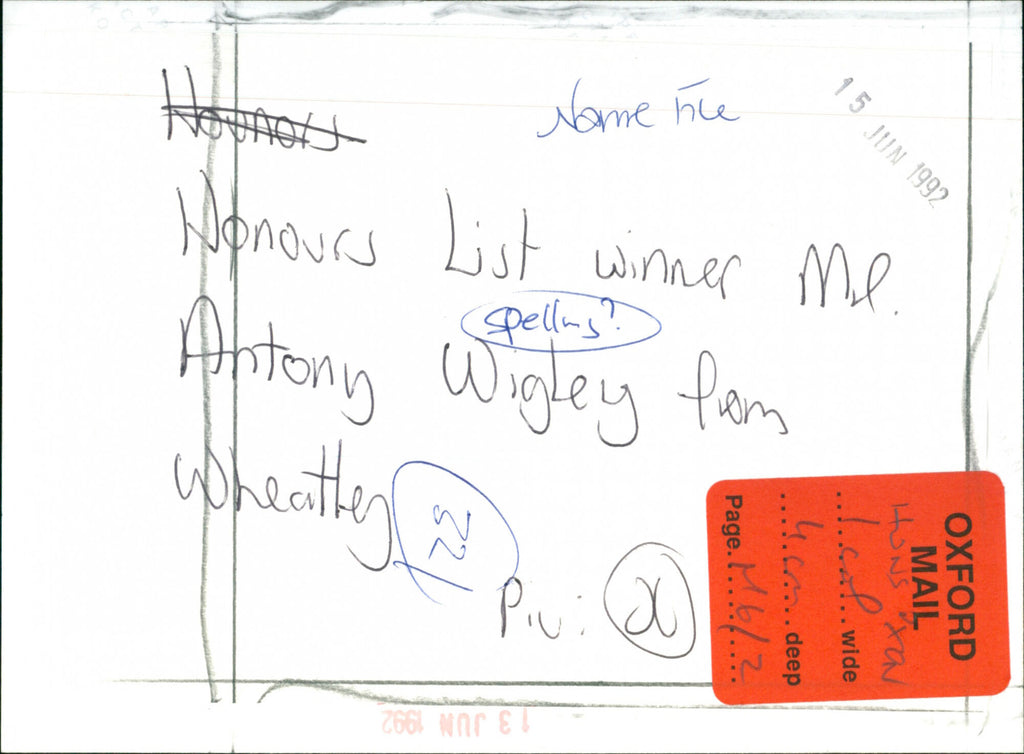 Hounors
Name File
15 JUN 1992
Honours List winner Mr.
spelling?
Antony Wigley from
Wheatley
Pic: X
OXFORD
MAIL
1 col wide
4 cm deep
Page M6/2
13 JUN 1992